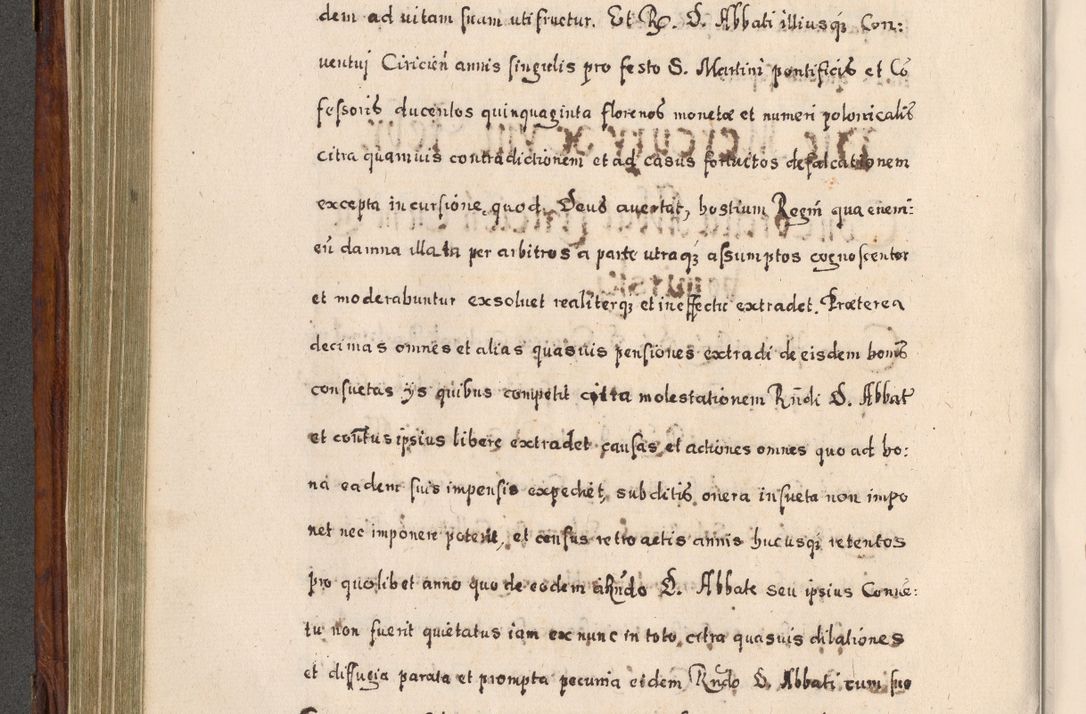 dem ad uitam suam uti fruetur. Et R. D. Abbati illiusq́ Con:
uentuj Ciricień annis singulis pro festo S. Martini pontificis et Cō
fessoris ducentos quinquaginta florenos monetæ et numeri polonicalis
citra quamuis contradictionem et ad casus fortuitos defalcationem
excepta incursione, quod Deus auertat, hostium Regni qua enem:
eū damna illata per arbitros a parte utraq́ assumptos cognoscentur
et moderabuntur exsoluet realiterq́ et in effectu extradet. Præterea
decimas omnes et alias quasuis pensiones extradi de eisdem bonis
consuetas ijs quibus competit citra molestationem Rndi D. Abbat
et contus ipsius libere extradet causas et actiones omnes quo ad bo:
na eadem suis impensis expediet, subditis onera insueta non impo
net nec imponere poterit, et census retro actis annis hucusq́ retentos
pro quolibet anno quo de eodem a Rndo D. Abbate seu ipsius Conue:
tu non fuerit quietatus iam ex nunc in toto citra quasuis dilationes
et diffugia parata et prompta pecunia eidem Rndo D. Abbati cum suo